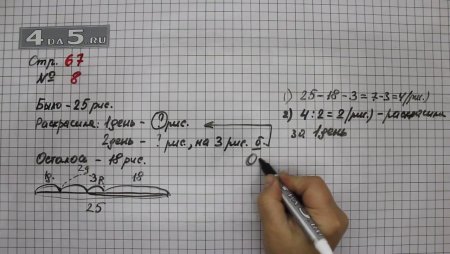 4 DA 5 .RU
Стр. 67
№ 8
Было - 25 рис.
Раскрасила: 1 день - рис.
2 день - ? рис., на 3 рис. б
Осталось - 18 рис.
3р. 18
25
1) 25 - 18 - 3 = 7 - 3 = 4 (рис.)
2) 4 : 2 = 2 (рис.) - раскрасила
за 1 день